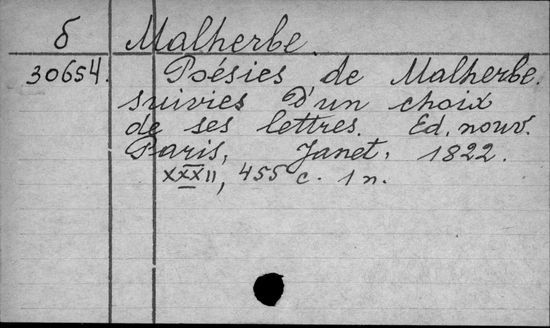 б Malherbe.
30654. Poésies de Malherbe.
suivies d'un choix
de ses lettres. Ed. nouv.
Paris, Janet. 1822.
XXXII, 455 c. 1 n.